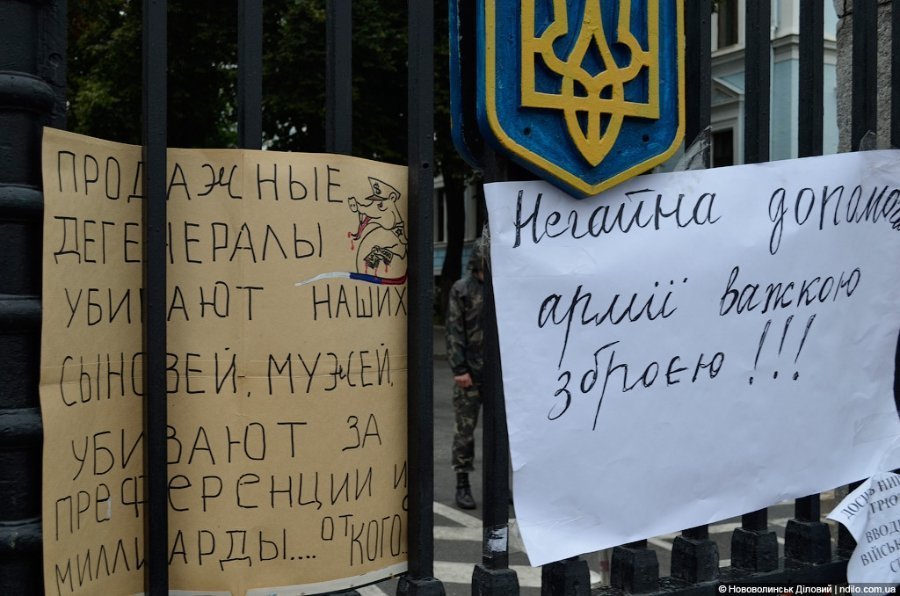 ПРОДАЖНЫЕ
ДЕГЕНЕРАЛЫ
УБИВАЮТ НАШИХ
СЫНОВЕЙ, МУЖЕЙ,
УБИВАЮТ ЗА
ПРЕФЕРЕНЦИИ И
МИЛЛИАРДЫ.... ОТ КОГО...
Негайна допомога
армії важкою
зброєю !!!
ВВОДИ
© Нововолинськ Діловий | ndilo.com.ua